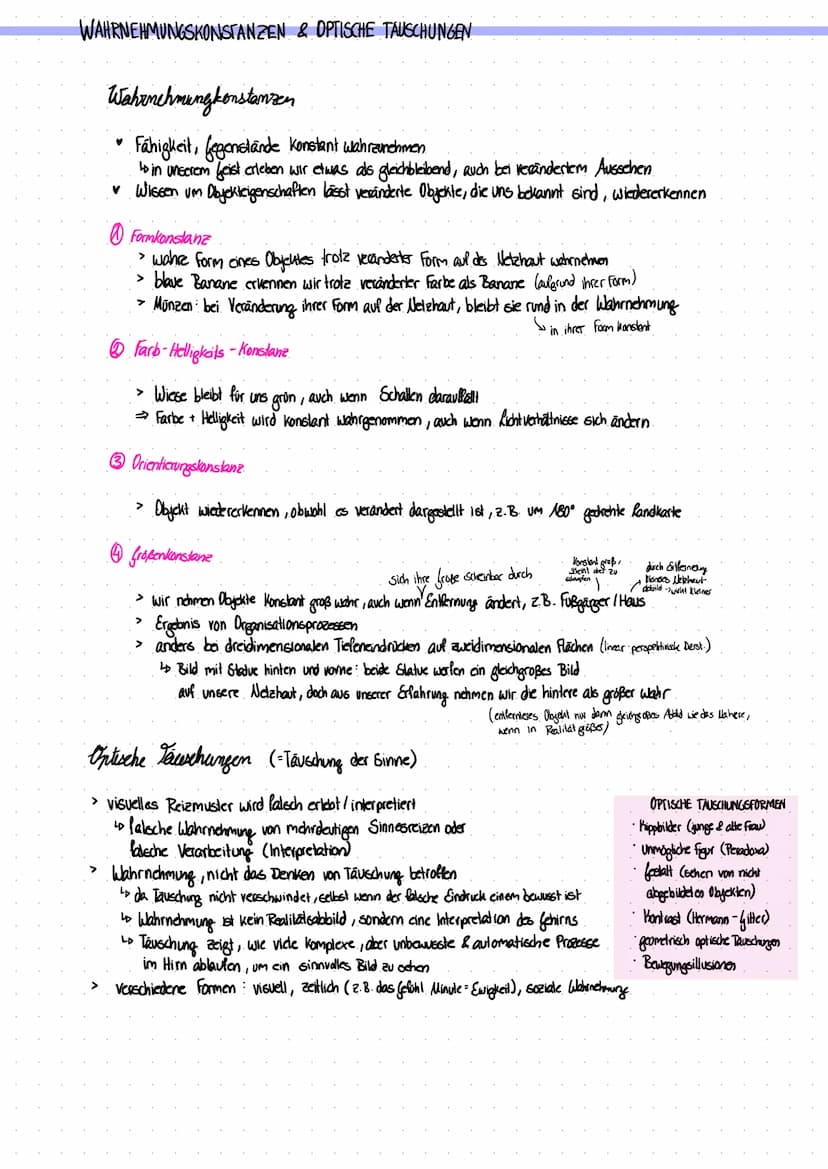 WAHRNEHMUNGSKONSTANZEN & OPTISCHE TÄUSCHUNGEN
Wahrnehmungkonstanzen
Fähigkeit, Gegenstände konstant wahrzunehmen
↳ in unserem Geist erleben wir etwas als gleichbleibend, auch bei verändertem Aussehen
Wissen um Objekteigenschaften lässt veränderte Objekte, die uns bekannt sind, wiedererkennen
① Formkonstanz
> wahre Form eines Objektes trotz veränderter Form auf des Netzhaut wahrnehmen
> blaue Banane erkennen wir trotz veränderter Farbe als Banane (aufgrund ihrer Form)
> Münzen: bei Veränderung ihrer Form auf der Netzhaut, bleibt sie rund in der Wahrnehmung
↳ in ihrer Form konstant
② Farb-Helligkeits-Konstanz
> Wiese bleibt für uns grün, auch wenn Schatten darauffällt
⇒ Farbe + Helligkeit wird konstant wahrgenommen, auch wenn Lichtverhältnisse sich ändern
③ Orientierungskonstanz
> Objekt wiedererkennen, obwohl es verändert dargestellt ist, z.B. um 180° gedrehte Landkarte
④ Größenkonstanz
sich ihre Größe scheinbar durch
konstant groß,
durch Entfernung
kleineres Netzhaut-
abbild → wirkt kleiner
> wir nehmen Objekte konstant groß wahr, auch wenn Entfernung ändert, z.B. Fußgänger / Haus
> Ergebnis von Organisationsprozessen
> anders bei dreidimensionalen Tiefeneindrücken auf zweidimensionalen Flächen (linear-perspektivische Darst.)
↳ Bild mit Statue hinten und vorne: beide Statue werfen ein gleichgroßes Bild
auf unsere Netzhaut, doch aus unserer Erfahrung nehmen wir die hintere als größer wahr
(entferntes Objekt nur dann großes Abbild wie das Nähere,
wenn in Realität größer)
Optische Täuschungen (=Täuschung der Sinne)
> visuelles Reizmuster wird falsch erlebt / interpretiert
↳ falsche Wahrnehmung von mehrdeutigen Sinnesreizen oder
falsche Verarbeitung (Interpretation)
> Wahrnehmung, nicht das Denken von Täuschung betroffen
↳ da Täuschung nicht verschwindet, selbst wenn der falsche Eindruck einem bewusst ist
↳ Wahrnehmung ist kein Realitätsabbild, sondern eine Interpretation des Gehirns
↳ Täuschung zeigt, wie viele komplexe, aber unbewusste & automatische Prozesse
im Hirn ablaufen, um ein sinnvolles Bild zu sehen
> verschiedene Formen: visuell, zeitlich (z.B. das Gefühl Minute = Ewigkeit), soziale Wahrnehmung
OPTISCHE TÄUSCHUNGSFORMEN
· Kippbilder (junge & alte Frau)
· unmögliche Figur (Paradoxa)
· Gestalt (sehen von nicht
abgebildeten Objekten)
· Kontrast (Hermann-Gitter)
· geometrisch optische Täuschungen
· Bewegungsillusionen